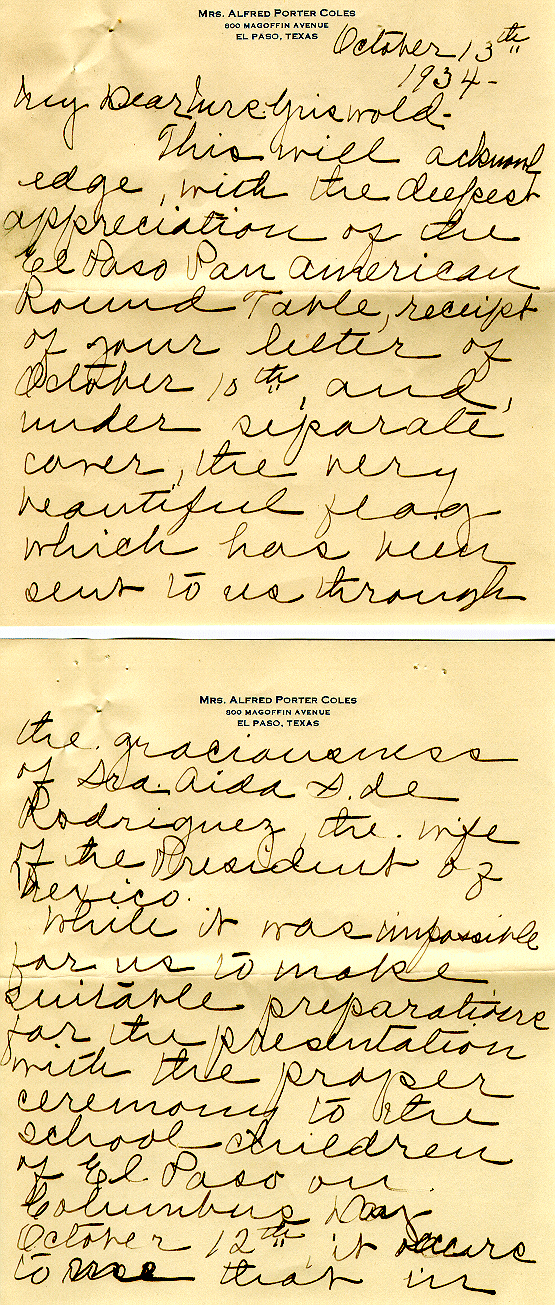 Mrs. Alfred Porter Coles
800 Magoffin Avenue
El Paso, Texas
October 13th
1934-
My Dear Mrs. Griswold-
This will acknowl
edge, with the deepest
appreciation of the
El Paso Pan American
Round Table, receipt
of your letter of
October 10th, and,
under separate
cover, the very
beautiful flag
which has been
sent to us through
Mrs. Alfred Porter Coles
800 Magoffin Avenue
El Paso, Texas
the graciousness
of Sra. Aida S. de
Rodriguez, the wife
of the President of
Mexico.
While it was impossible
for us to make
suitable preparations
for the presentation
with the proper
ceremony to the
school children
of El Paso on
Columbus Day
October 12th, it occurs
to me that in